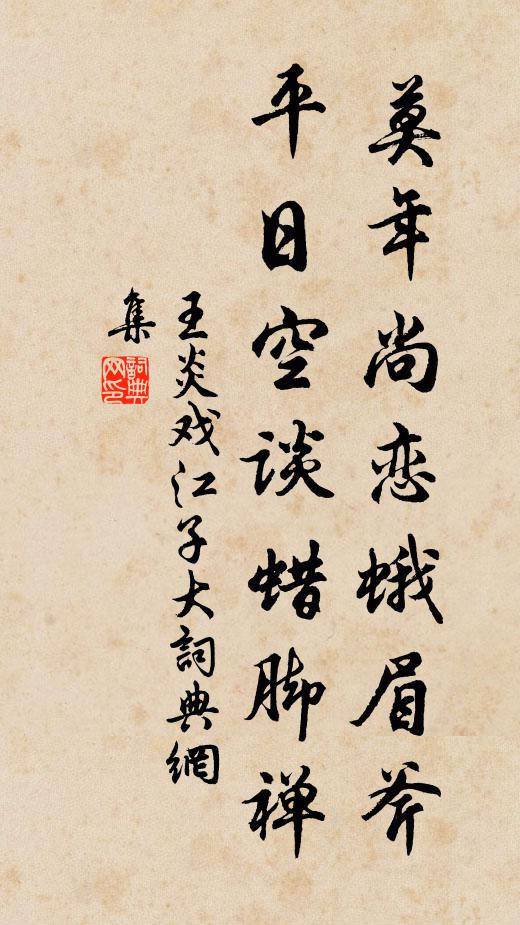 莫年尚恋蛾眉斧
平日空谈蜡脚禅
王炎戏江子大詞典網
集
詞典
网印